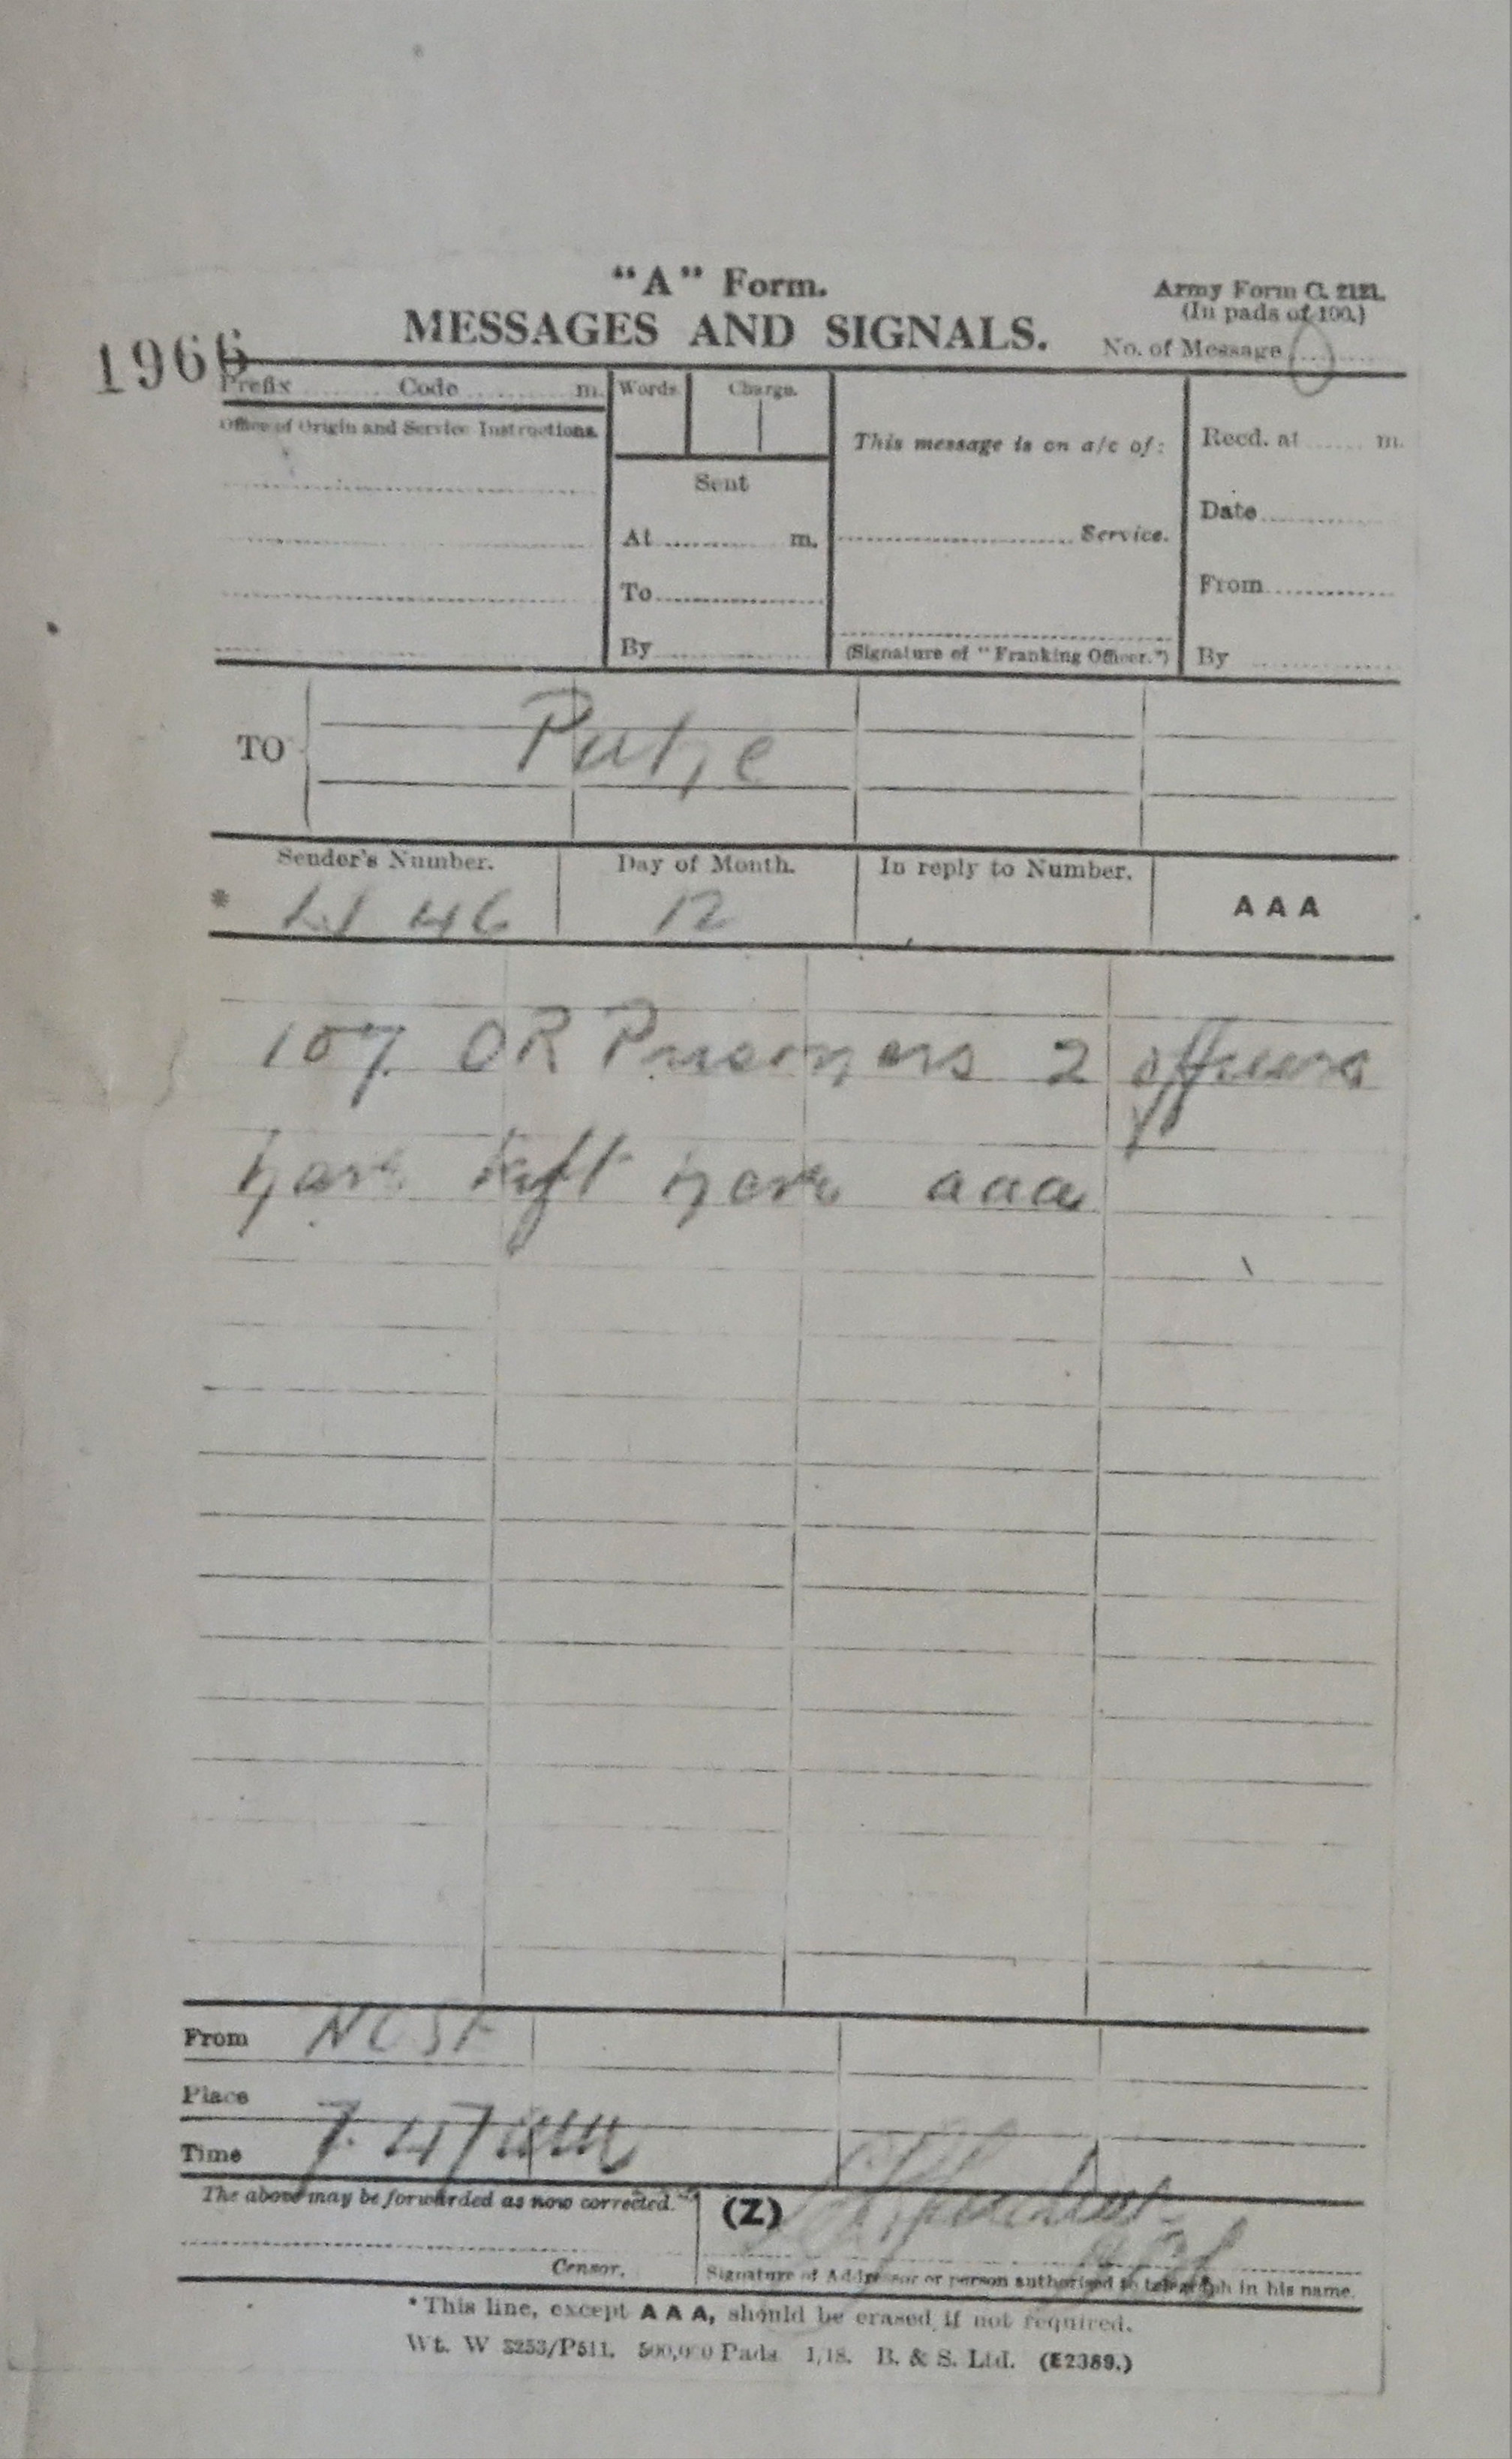 "A" Form.
Army Form C. 2121.
(In pads of 100.)
MESSAGES AND SIGNALS.
No. of Message
1966
Prefix Code m.
Words
Charge.
Office of Origin and Service Instructions.
This message is on a/c of:
Recd. at m.
Sent
Date
At m.
Service.
To
From
By
(Signature of "Franking Officer.")
By
TO
Sender's Number.
Day of Month.
In reply to Number.
AAA
* 46
12
107 OR Prisoners 2 officers
have left here aaa
From
Place
Time 7.47
The above may be forwarded as now corrected.
(Z)
Censor.
Signature of Addressor or person authorised to telegraph in his name.
* This line, except AAA, should be erased if not required.
Wt. W 3253/P511. 500,000 Pads 1/18. B. & S. Ltd. (E2389.)